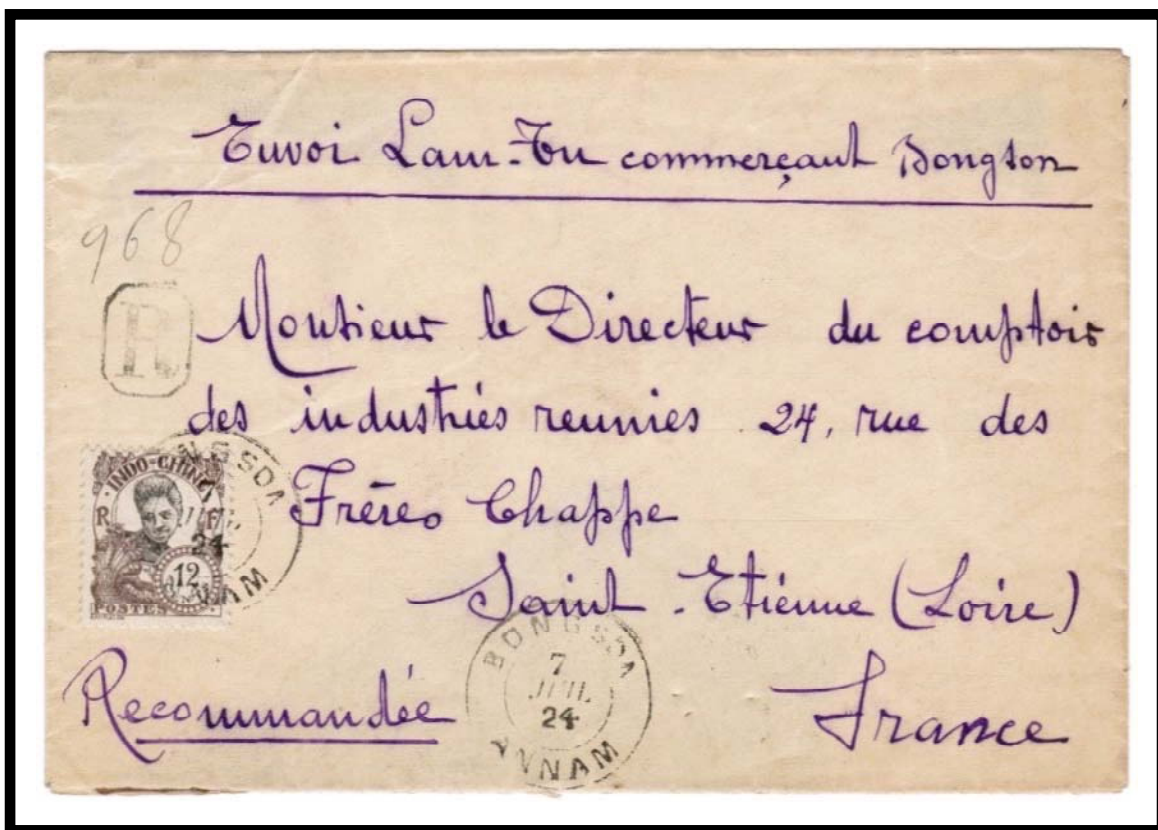 Envoi Lam-Tu commerçant Bongson
968
R
Monsieur le Directeur du comptoir
des industries reunies 24, rue des
Frères Chappe
Saint-Etienne (Loire)
France
Recommandée
INDO-CHINE
R F
12
CENTS
POSTES
NGSON
JUIL
24
ANNAM
BONGSON
7
JUIL
24
ANNAM